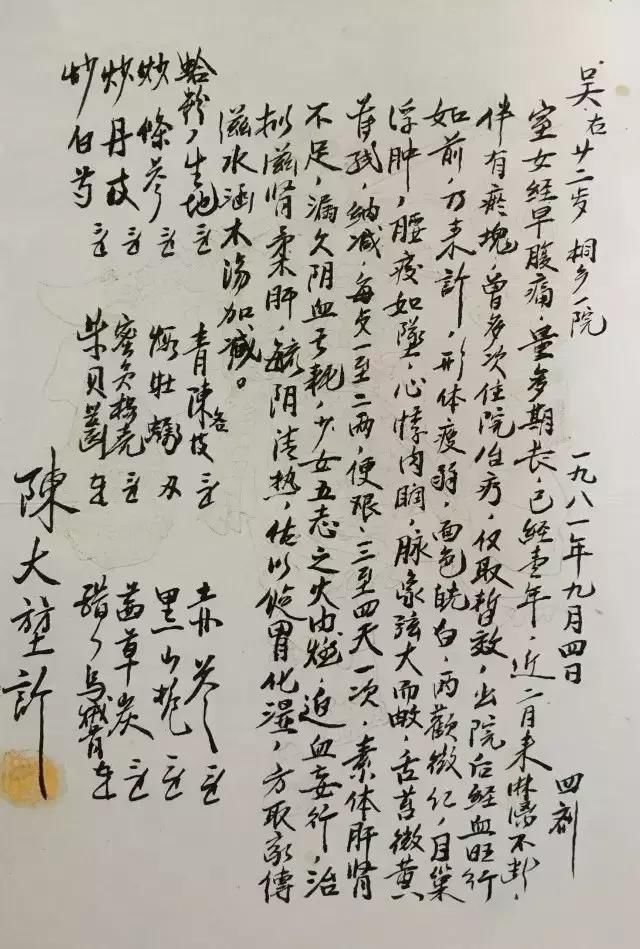 吴右 廿二岁 桐乡一院 一九八一年九月四日 四剂
室女经早腹痛，量多期长，已经壹年，近二月来淋漓不断，
伴有瘀块，曾多次住院治疗，仅取暂效，出院后经血旺行
如前，乃来诊，形体疲弱，面色㿠白，两颧微红，目窠
浮肿，腰痠如坠，心悸肉瞤，脉象弦大而芤，舌苔微黄
带腻，纳减，每食一至二两，便艰，三至四天一次，素体肝肾
不足，漏久阴血亏耗，少女五志之火内燃，迫血妄行，治
拟滋肾柔肝，毓阴清热，佐以饴胃化湿，方取家传
滋水涵木汤加减。
蛤粉ノ生地 青陈各 赤参
炒條参 煅牡蛎 黑山栀
炒丹皮 蜜炙椿壳 茜草炭
炒白芍 紫贝齿 醋ノ乌贼骨
陳大堃診